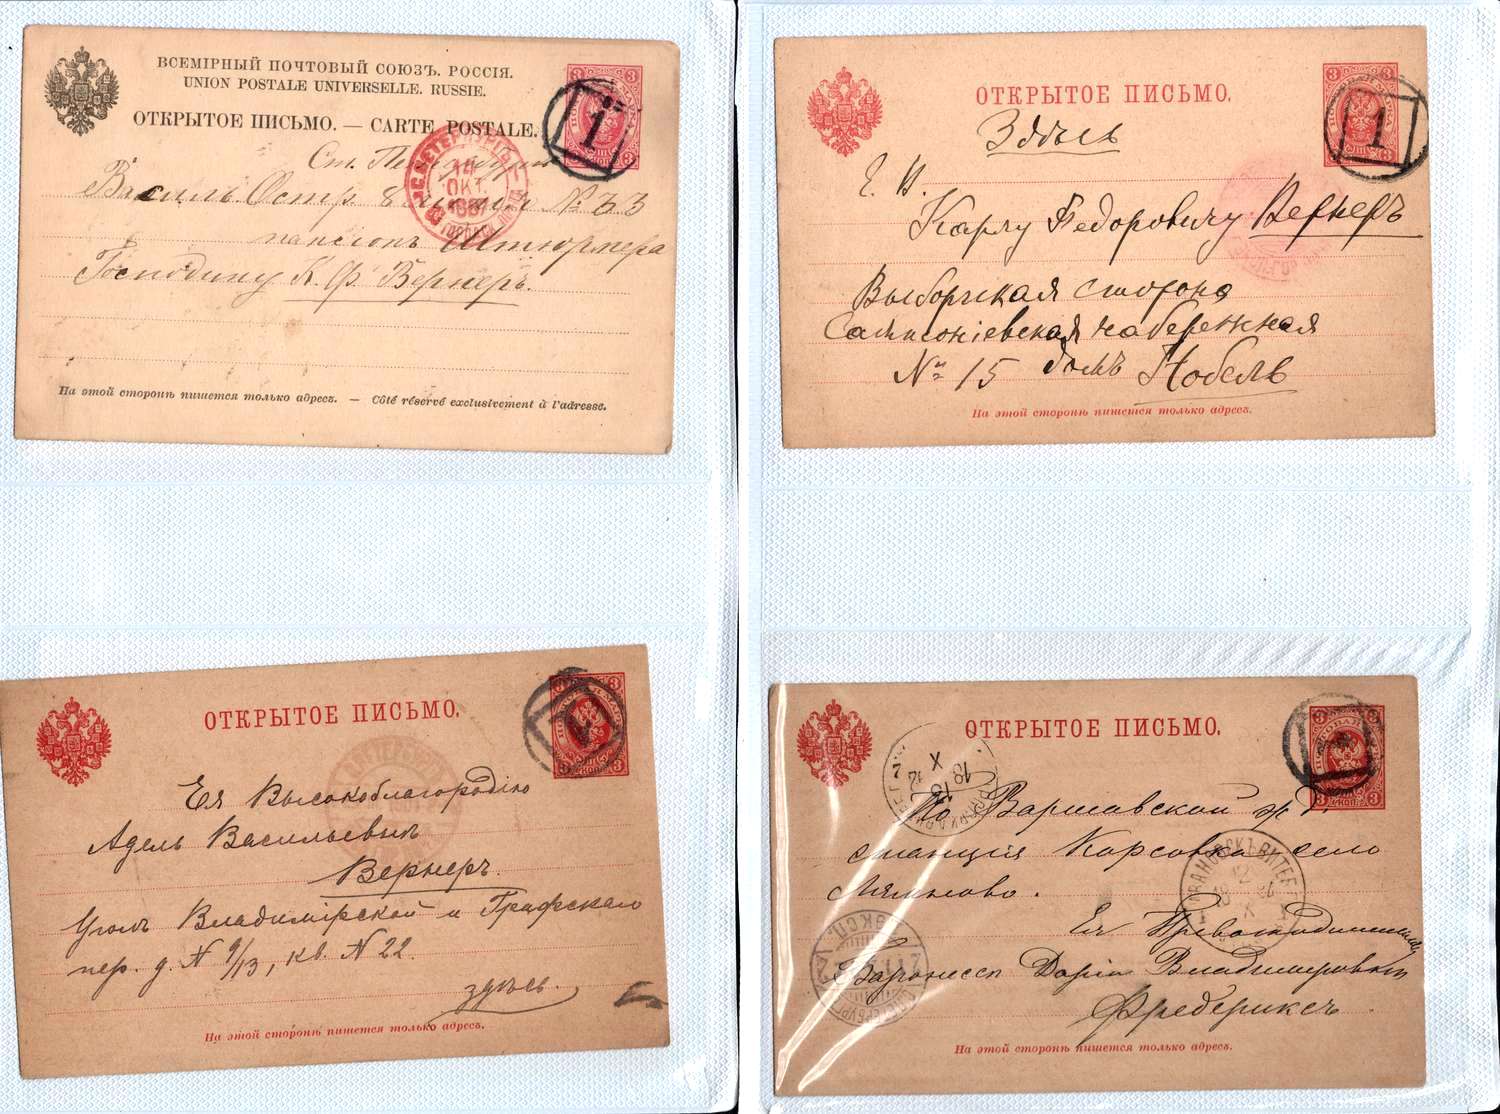 ВСЕМІРНЫЙ ПОЧТОВЫЙ СОЮЗЪ. РОССІЯ.
UNION POSTALE UNIVERSELLE. RUSSIE.
ОТКРЫТОЕ ПИСЬМО. — CARTE POSTALE.
3 3
1
С.ПЕТЕРБУРГЪ
14
ОКТ.
1887
Ст.
Василь Остр. 8 линія №
пансіонъ Штюрмера
Господину К. Ф. Вернеръ.
На этой сторонѣ пишется только адресъ. — Côté réservé exclusivement à l'adresse.
ОТКРЫТОЕ ПИСЬМО.
3 3
1
Здѣсь
Е. В.
Карлу Федоровичу Вернеръ
Выборгская сторона
Сампсоніевская набережная
№ 15 домъ Нобель
На этой сторонѣ пишется только адресъ.
ОТКРЫТОЕ ПИСЬМО.
3
1
Ея Высокоблагородію
Адель Васильевнѣ
Вернеръ.
Уголъ Владимірской и Графскаго
пер. д. N 9/13, кв. N 22.
здѣсь.
На этой сторонѣ пишется только адресъ.
ОТКРЫТОЕ ПИСЬМО.
3 3
По Варшавской ж. д.
станція Корсовка село
Ея Превосходительству
Баронессѣ Даріи Владимировнѣ
Фредериксъ.
На этой сторонѣ пишется только адресъ.